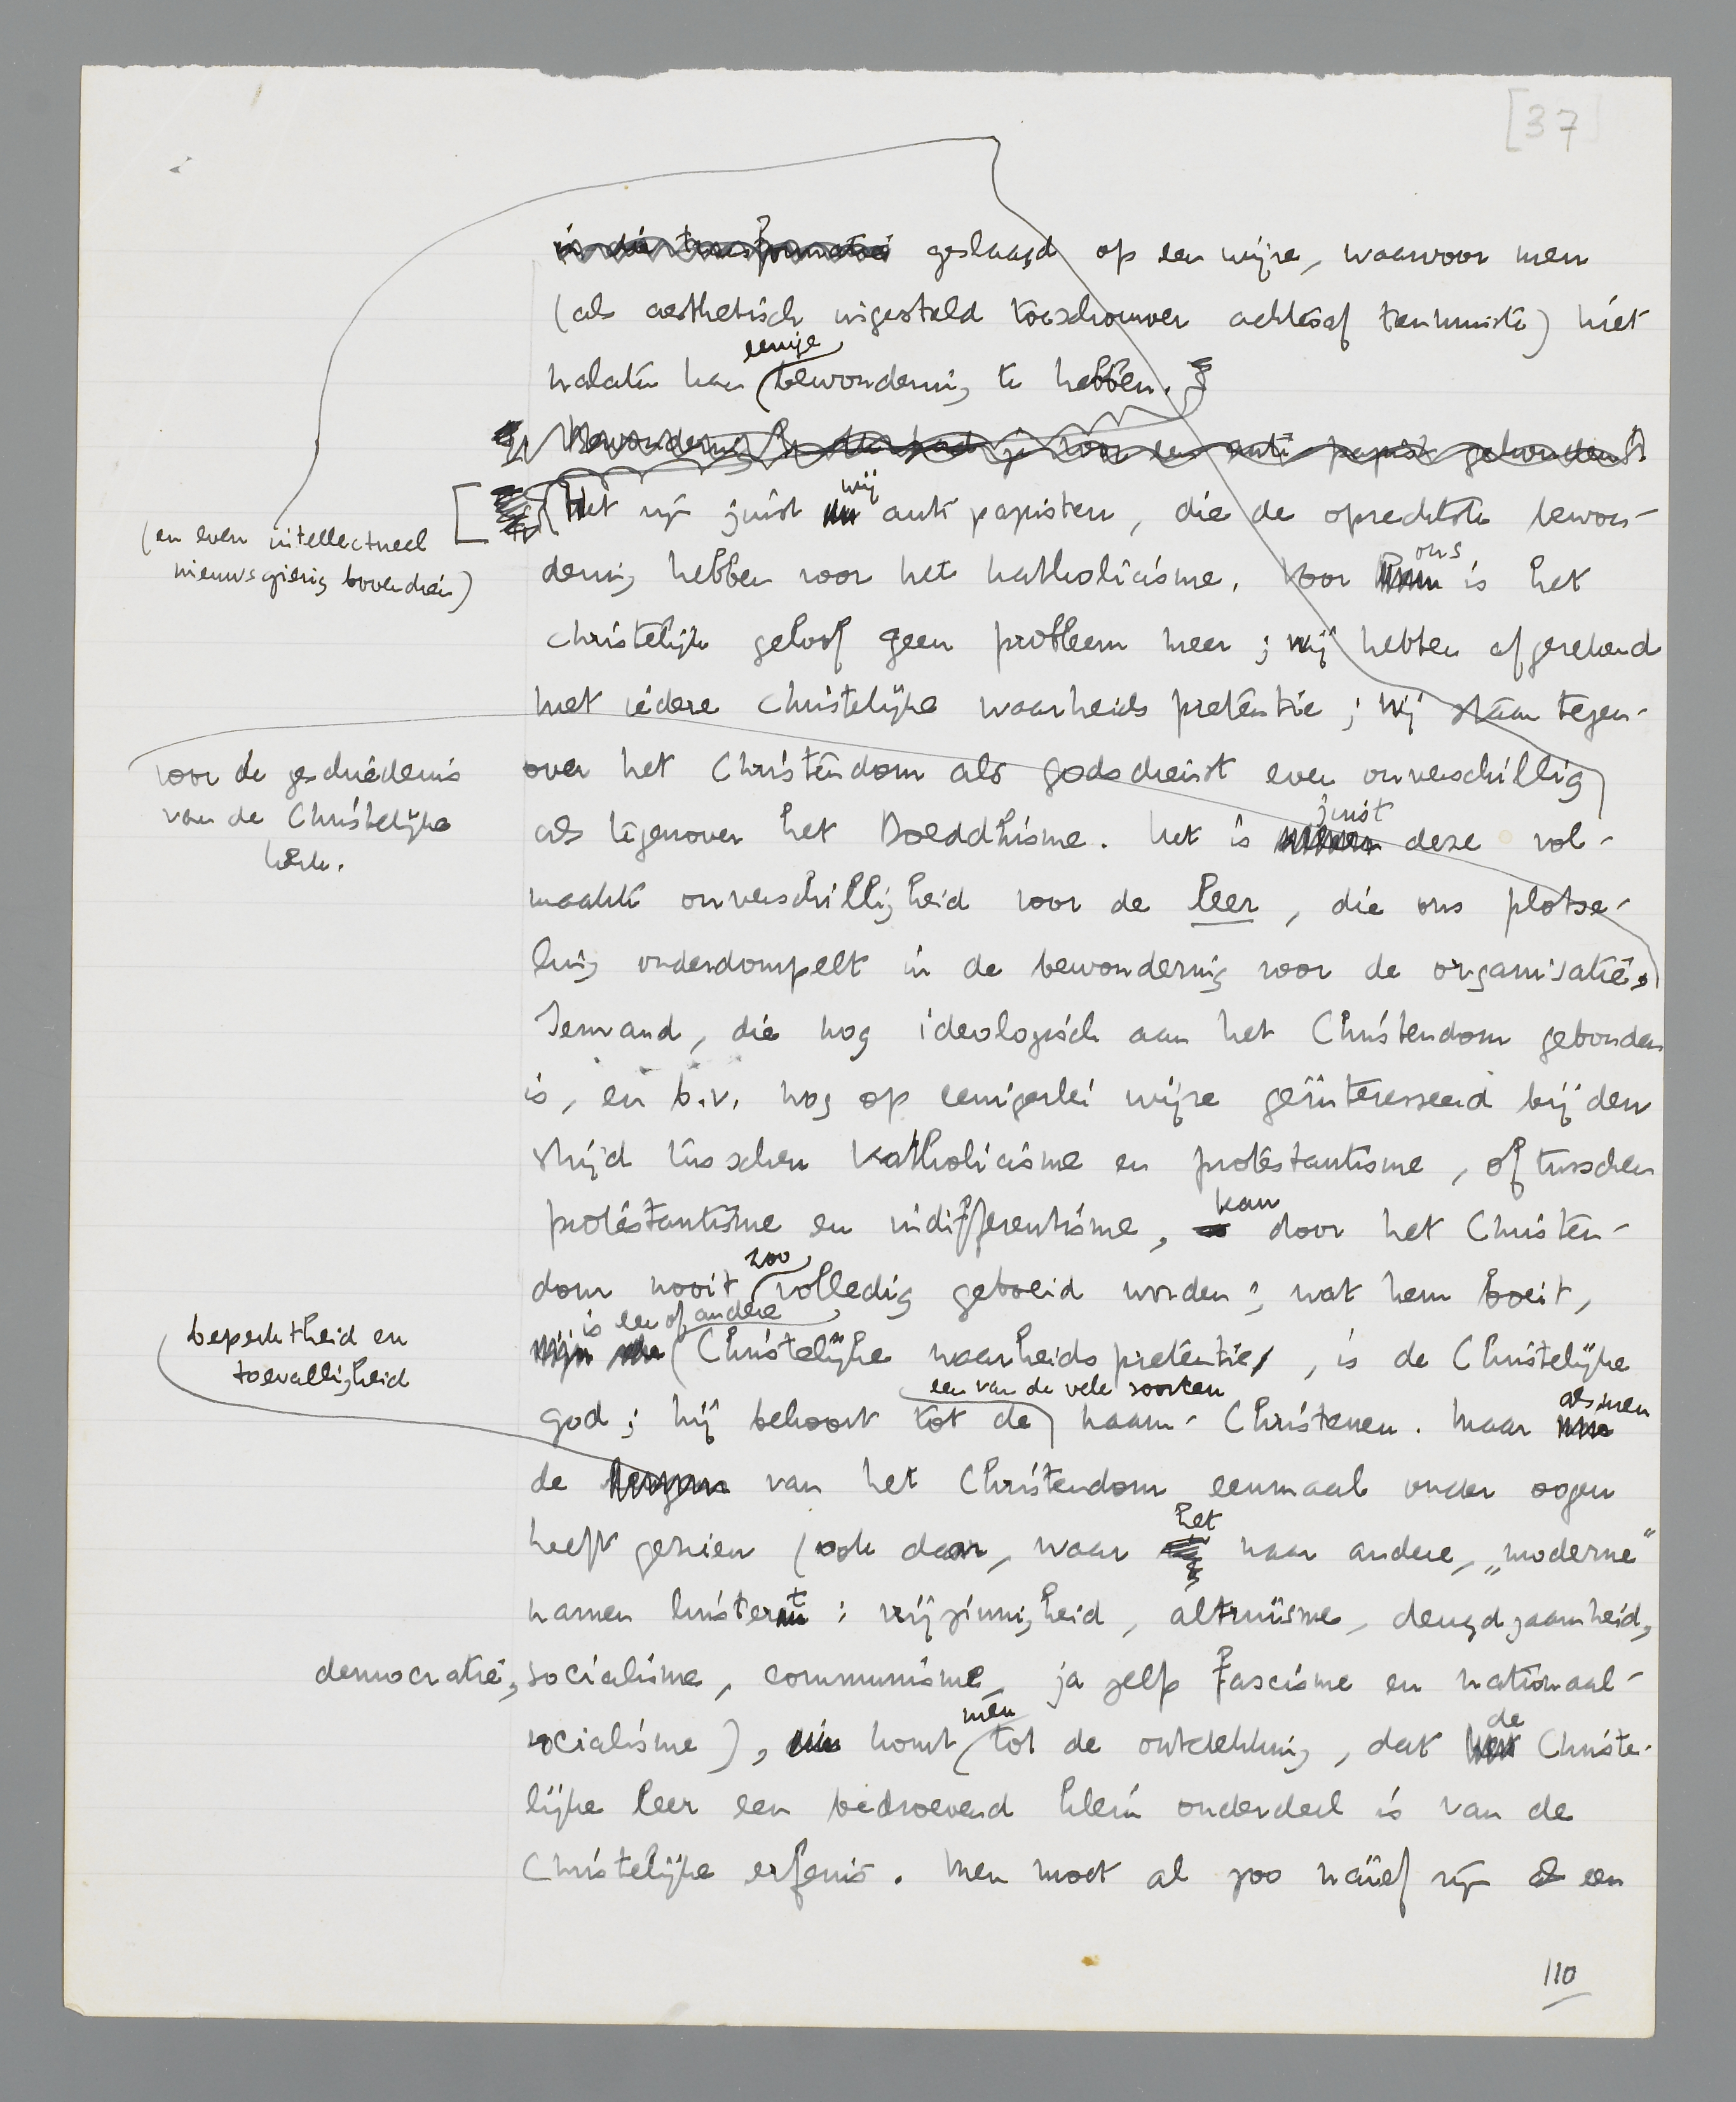 [37]
in die transformatie geslaagd op een wijze, waarvoor men
(als aesthetisch ingesteld toeschouwer achteraf tenminste) niet
nalaten kan eenige bewondering te hebben.
Bewondering?
Het zijn juist wij anti papisten, die de oprechtste bewon-
dering hebben voor het katholicisme. Voor ons is het
christelijk geloof geen probleem meer; wij hebben afgerekend
met iedere christelijke waarheids pretentie; wij staan tegen-
over het Christendom als godsdienst even onverschillig
(en even intellectueel
nieuwsgierig bovendien)
als tegenover het Boeddhisme. Het is juist deze vol-
maakte onverschilligheid voor de leer, die ons plotse-
ling onderdompelt in de bewondering voor de organisatie,
voor de geschiedenis
van de Christelijke
kerk.
Iemand, die nog ideologisch aan het Christendom gebonden
is, en b.v. nog op eenigerlei wijze geïnteresseerd bij den
strijd tusschen katholicisme en protestantisme, of tusschen
protestantisme en indifferentisme, kan door het Christen-
dom nooit zoo volledig geboeid worden; wat hem boeit,
is een of andere Christelijke waarheidspretentie, is de Christelijke
god; hij behoort tot de een van de vele soorten naam-Christenen. Maar als men
de beperktheid en
toevalligheid
van het Christendom eenmaal onder oogen
heeft gezien (ook daar, waar het naar andere, „moderne”
namen luistert: vrijzinnigheid, altruïsme, deugdzaamheid,
democratie, socialisme, communisme, ja zelfs fascisme en nationaal-
socialisme), komt men tot de ontdekking, dat de Christe-
lijke leer een bedroevend klein onderdeel is van de
Christelijke erfenis. Men moet al zoo naïef zijn een
110